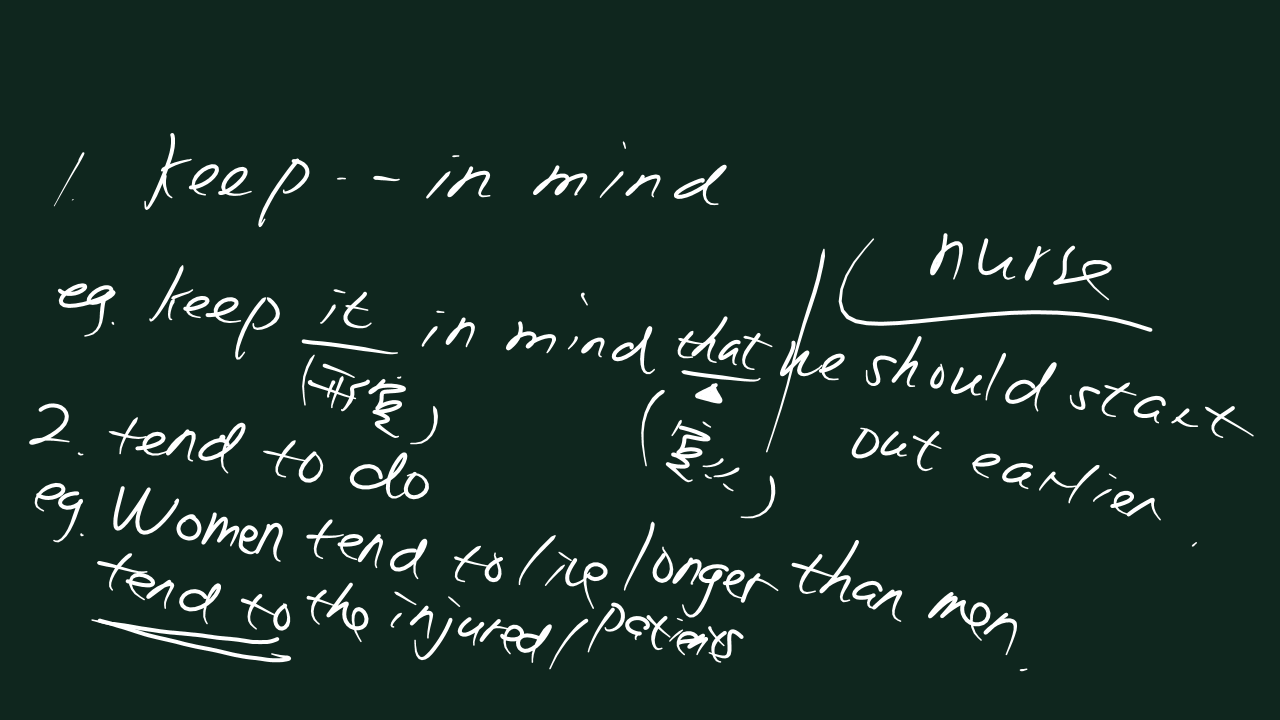 1. keep -- in mind
nurse
eg. keep it in mind that he should start
out earlier.
2. tend to do
eg. Women tend to live longer than men.
tend to the injured/patients